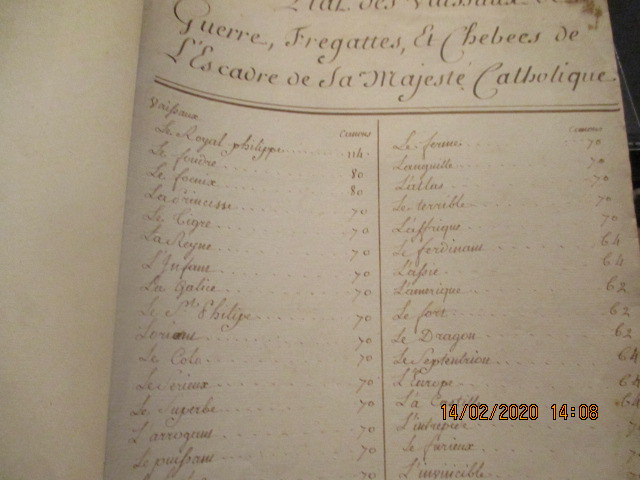 Etat des Vaisseaux de
Guerre, Fregattes, Et Chebees de
L'Escadre de Sa Majesté Catholique.
Vaissaux
Canons
Le Royal philippe 114
Le foudre 80
Le foenix 80
La Princesse 70
Le Tigre 70
La Reyne 70
L'Infant 70
La Galice 70
Le St. Philipe 70
Lorient 70
Le Colo 70
Le Serieux 70
Le Superbe 70
L'arrogant 70
Le puissant 70
Canons
Le ferme 70
Languille 70
L'atlas 70
Le terrible 70
L'affrique 70
Le ferdinant 64
L'asie 64
L'amerique 62
Le fort 62
Le Dragon 62
Le Septentrion 64
L'Europe 64
La Castille 64
L'intrepide 7
Le furieux 7
L'invincible
14/02/2020 14:08